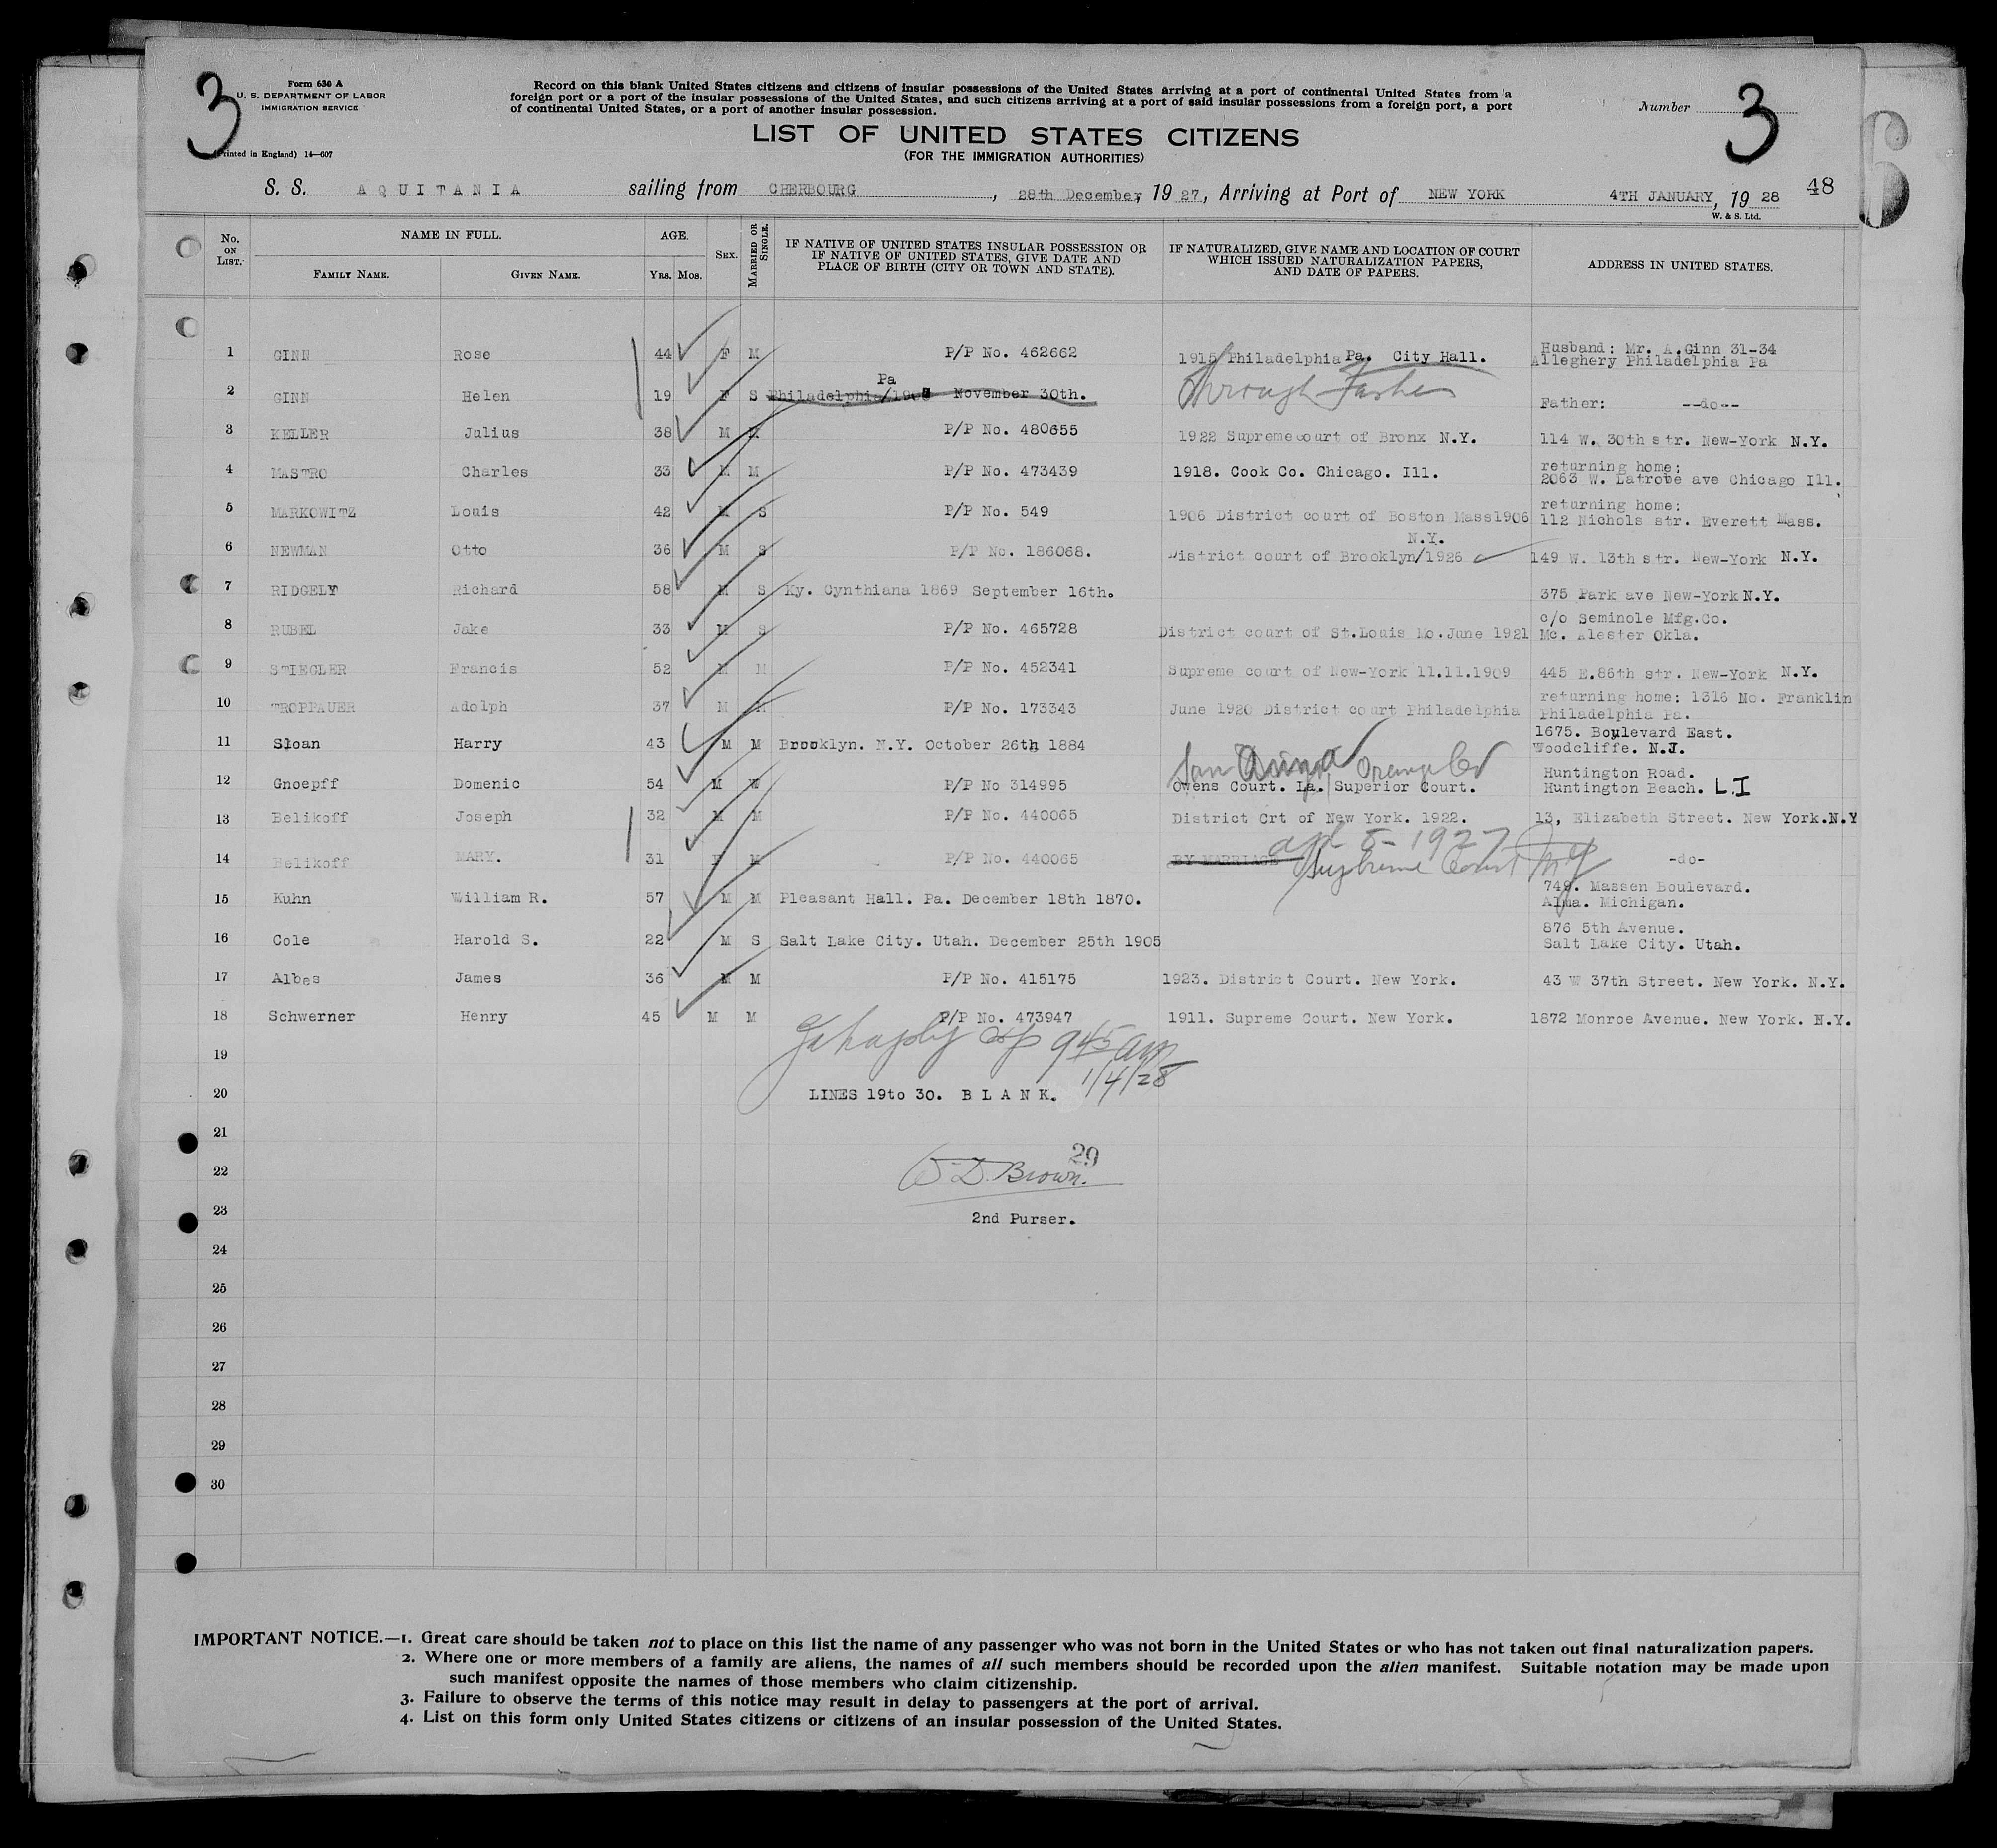 3
Form 630 A
U. S. DEPARTMENT OF LABOR
IMMIGRATION SERVICE
(Printed in England) 14—607
Record on this blank United States citizens and citizens of insular possessions of the United States arriving at a port of continental United States from a
foreign port or a port of the insular possessions of the United States, and such citizens arriving at a port of said insular possessions from a foreign port, a port
of continental United States, or a port of another insular possession.
Number 3
LIST OF UNITED STATES CITIZENS
(FOR THE IMMIGRATION AUTHORITIES)
S. S. AQUITANIA sailing from CHERBOURG, 28th December, 1927, Arriving at Port of NEW YORK 4TH JANUARY, 1928 48
W. & S. Ltd.
No. ON LIST. NAME IN FULL. FAMILY NAME. GIVEN NAME. AGE. YRS. MOS. SEX. MARRIED OR SINGLE. IF NATIVE OF UNITED STATES INSULAR POSSESSION OR IF NATIVE OF UNITED STATES, GIVE DATE AND PLACE OF BIRTH (CITY OR TOWN AND STATE). IF NATURALIZED, GIVE NAME AND LOCATION OF COURT WHICH ISSUED NATURALIZATION PAPERS, AND DATE OF PAPERS. ADDRESS IN UNITED STATES.
1 GINN Rose 44 F M P/P No. 462662 1915 Philadelphia Pa. City Hall. Husband: Mr. A.Ginn 31-34 Alleghery Philadelphia Pa
2 GINN Helen 19 F S Philadelphia/ Pa November 30th. Through Father Father: --do--
3 KELLER Julius 38 M M P/P No. 480655 1922 Supremecourt of Bronx N.Y. 114 W. 30th str. New-York N.Y.
4 MASTRO Charles 33 M M P/P No. 473439 1918. Cook Co. Chicago. Ill. returning home: 2063 W. Latrobe ave Chicago Ill.
5 MARKOWITZ Louis 42 M S P/P No. 549 1906 District court of Boston Mass1906 returning home: 112 Nichols str. Everett Mass.
6 NEWMAN Otto 36 M S P/P No. 186068. District court of Brooklyn/ N.Y. 1926 149 W. 13th str. New-York N.Y.
7 RIDGELY Richard 58 M S Ky. Cynthiana 1869 September 16th. 375 Park ave New-York N.Y.
8 RUBEL Jake 33 M S P/P No. 465728 District court of St.Louis Mo.June 1921 c/o Seminole Mfg.Co. Mc. Alester Okla.
9 STIEGLER Francis 52 M M P/P No. 452341 Supreme court of New-York 11.11.1909 445 E.86th str. New-York N.Y.
10 TROPPAUER Adolph 37 M M P/P No. 173343 June 1920 District court Philadelphia returning home: 1316 No. Franklin Philadelphia Pa.
11 Sloan Harry 43 M M Brooklyn. N.Y. October 26th 1884 1675. Boulevard East. Woodcliffe. N.J.
12 Gnoepff Domenic 54 M W P/P No 314995 Owens Court. La. Superior Court. Huntington Road. Huntington Beach. L.I
13 Belikoff Joseph 32 M M P/P No. 440065 District Crt of New York. 1922. 13, Elizabeth Street. New York.N.Y
14 Belikoff MARY. 31 F M P/P No. 440065 BY MARRIAGE 5-1927 Supreme Court NY -do-
15 Kuhn William R. 57 M M Pleasant Hall. Pa. December 18th 1870. 749. Massen Boulevard. Alma. Michigan.
16 Cole Harold S. 22 M S Salt Lake City. Utah. December 25th 1905 876 5th Avenue. Salt Lake City. Utah.
17 Albes James 36 M M P/P No. 415175 1923. District Court. New York. 43 W 37th Street. New York. N.Y.
18 Schwerner Henry 45 M M P/P No. 473947 1911. Supreme Court. New York. 1872 Monroe Avenue. New York. N.Y.
19 945 am
1/4/28
20 LINES 19to 30. B L A N K.
21
22 29
D. Brown.
23 2nd Purser.
24
25
26
27
28
29
30
IMPORTANT NOTICE.—1. Great care should be taken not to place on this list the name of any passenger who was not born in the United States or who has not taken out final naturalization papers.
2. Where one or more members of a family are aliens, the names of all such members should be recorded upon the alien manifest. Suitable notation may be made upon
such manifest opposite the names of those members who claim citizenship.
3. Failure to observe the terms of this notice may result in delay to passengers at the port of arrival.
4. List on this form only United States citizens or citizens of an insular possession of the United States.